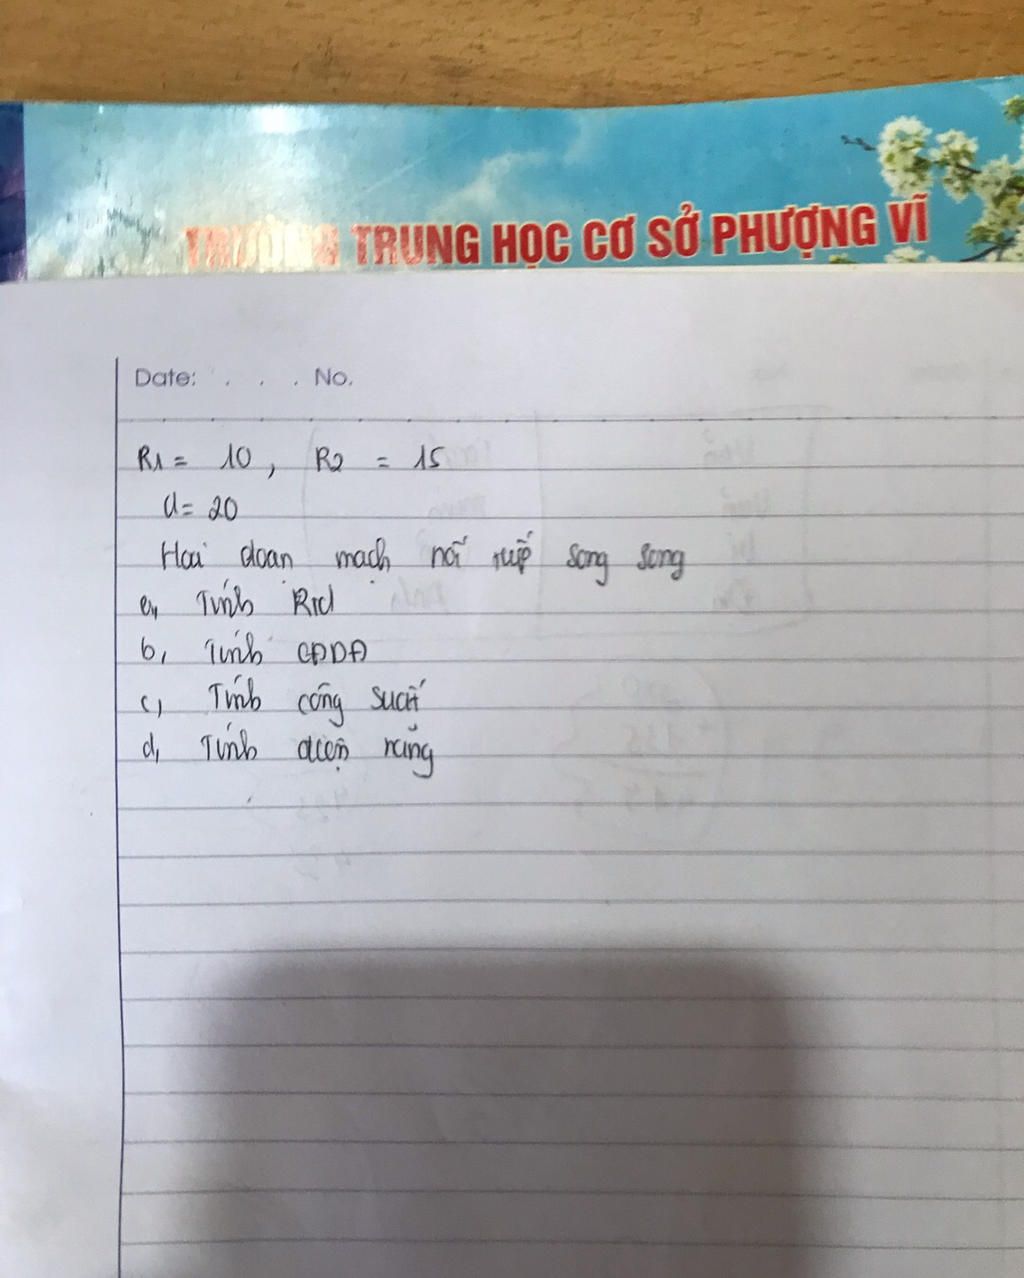 TRƯỜNG TRUNG HỌC CƠ SỞ PHƯỢNG VĨ
Date: . . . No.
R1 = 10 , R2 = 15
U = 20
Hai đoan mach nối tiếp song song
a, Tính Rtd
b, Tính CĐDĐ
c, Tính công suất
d, Tính điện năng